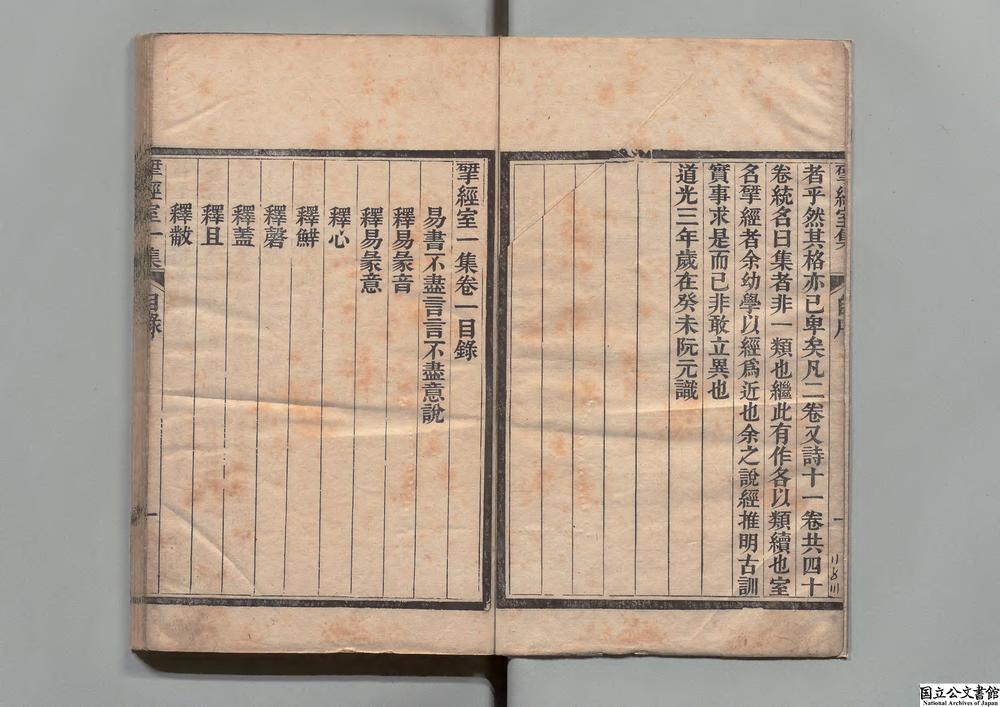 揅經室集
自序
一
者乎然其格亦已卑矣凡二卷又詩十一卷共四十
卷統名曰集者非一類也繼此有作各以類續也室
名揅經者余幼學以經爲近也余之說經推明古訓
實事求是而已非敢立異也
道光三年歲在癸未阮元識
揅經室一集卷一目錄
易書不盡言言不盡意說
釋易彖音
釋易彖意
釋心
釋鮮
釋磬
釋蓋
釋且
釋黻
揅經室一集
目錄
一
国立公文書館
National Archives of Japan